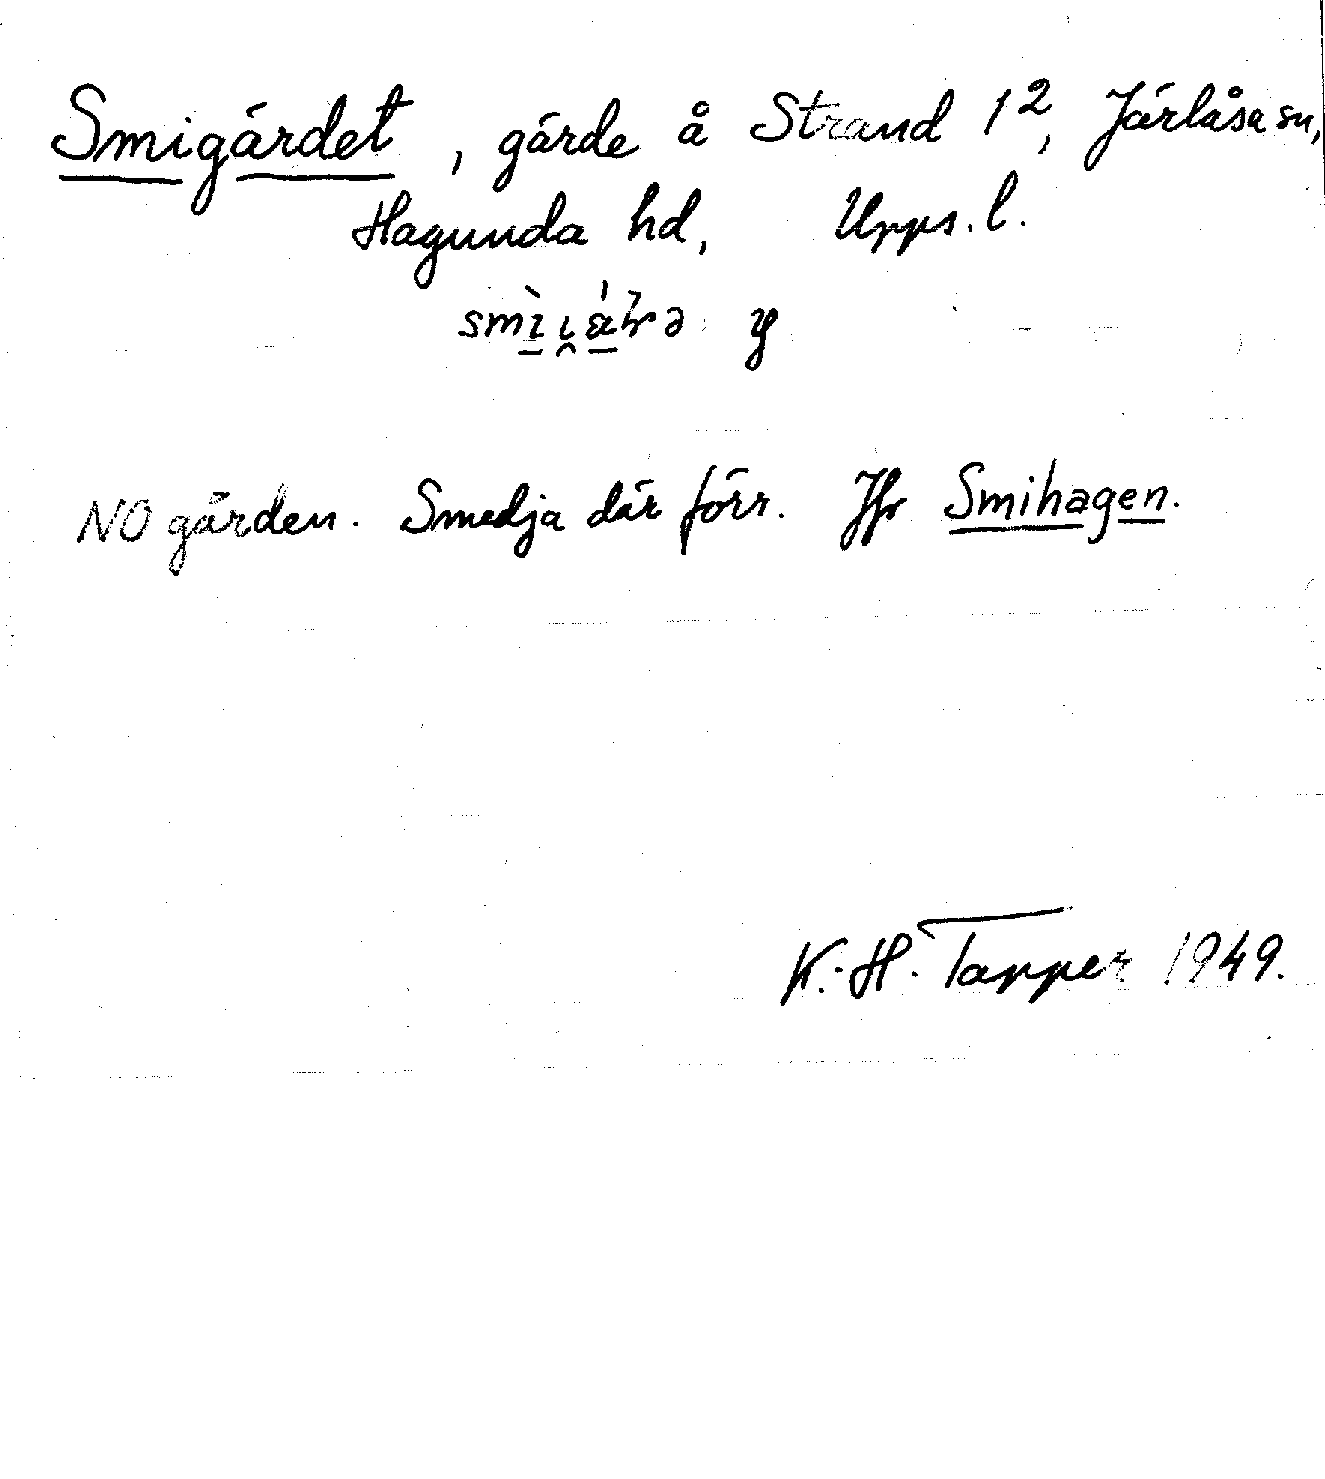 Smigärdet, gärde å Strand 1², Järlåsa sn,
Hagunda hd, Upps. l.
NO gården. Smedja där förr. Jfr Smihagen.
K.-H. Tapper 1949.